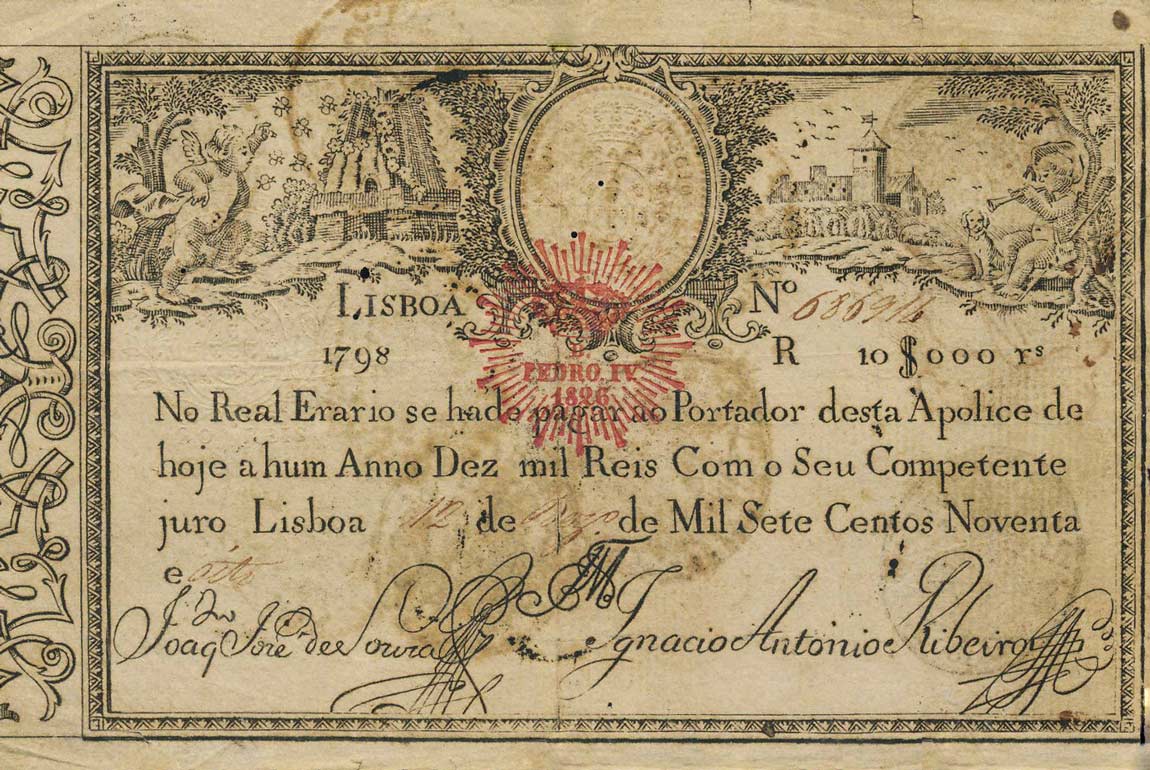 LISBOA
Nº 686914
1798
R 10 $ 000 rs
PEDRO IV
1826
No Real Erario se hade pagar ao Portador desta Apolice de
hoje a hum Anno Dez mil Reis Com o Seu Competente
juro Lisboa 12 de de Mil Sete Centos Noventa
e oito
Joaq José de Souza
Ignacio António Ribeiro